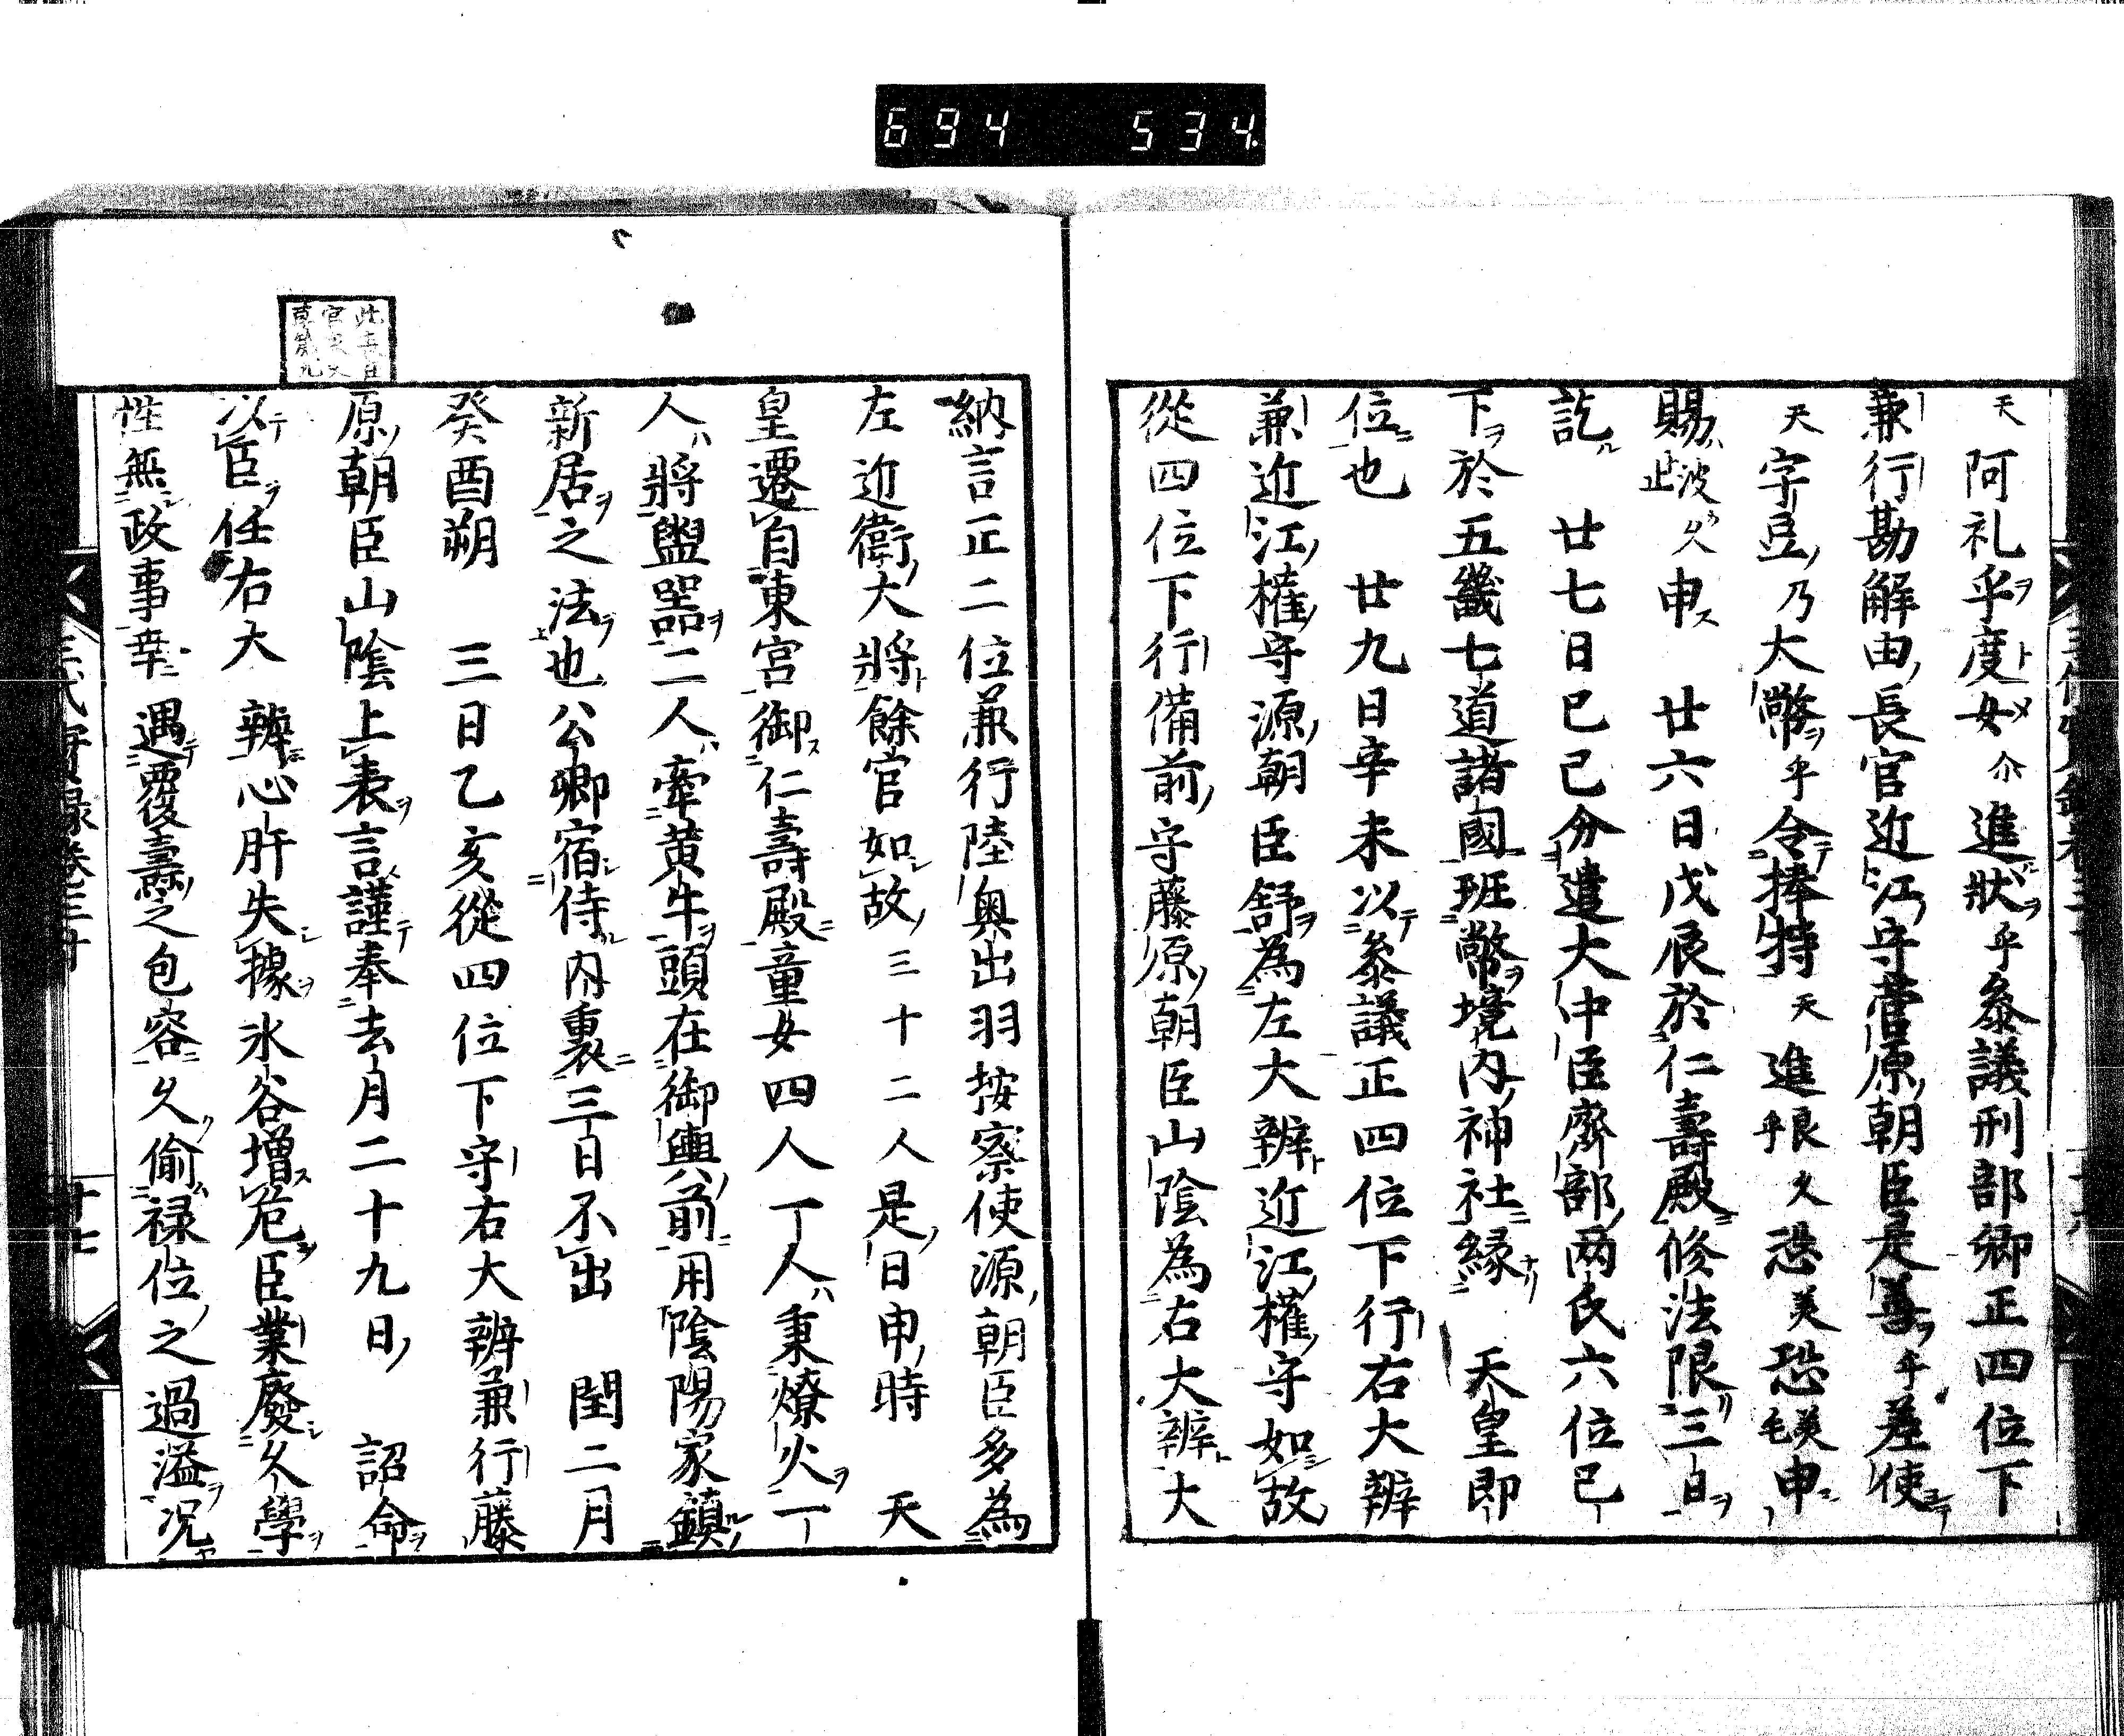 694 534
天阿礼乎度女尓進狀乎叅議刑部卿正四位下
兼行勘解由長官近江守菅原朝臣是善乎差使
天字豆乃大幣乎令捧持天進良久乎恐美恐美毛申
賜波久止申 廿六日戊辰於仁壽殿修法限三日
訖 廿七日己巳分遣大中臣齋部兩氏六位已
下於五畿七道諸國班幣境内神社縁 天皇即
位也 廿九日辛未以叅議正四位下行右大辨
兼近江權守源朝臣舒為左大辨近江權守如故
從四位下行備前守藤原朝臣山陰為右大辨大
納言正二位兼行陸奥出羽按察使源朝臣多為
左近衛大將餘官如故三十二人是日申時 天
皇遷自東宮御仁壽殿童女四人一人秉燎火一
人將盥器二人牽黄牛頭在御輿前用陰陽家鎮
新居之法也公卿宿侍内裏三日不出 閏二月
癸酉朔 三日乙亥從四位下守右大辨兼行藤
原朝臣山陰上表言謹奉去月二十九日 詔命
以臣任右大辨心肝失據氷谷増危臣業廢久學
性無政事幸遇覆壽之包容久偷祿位之過溢況